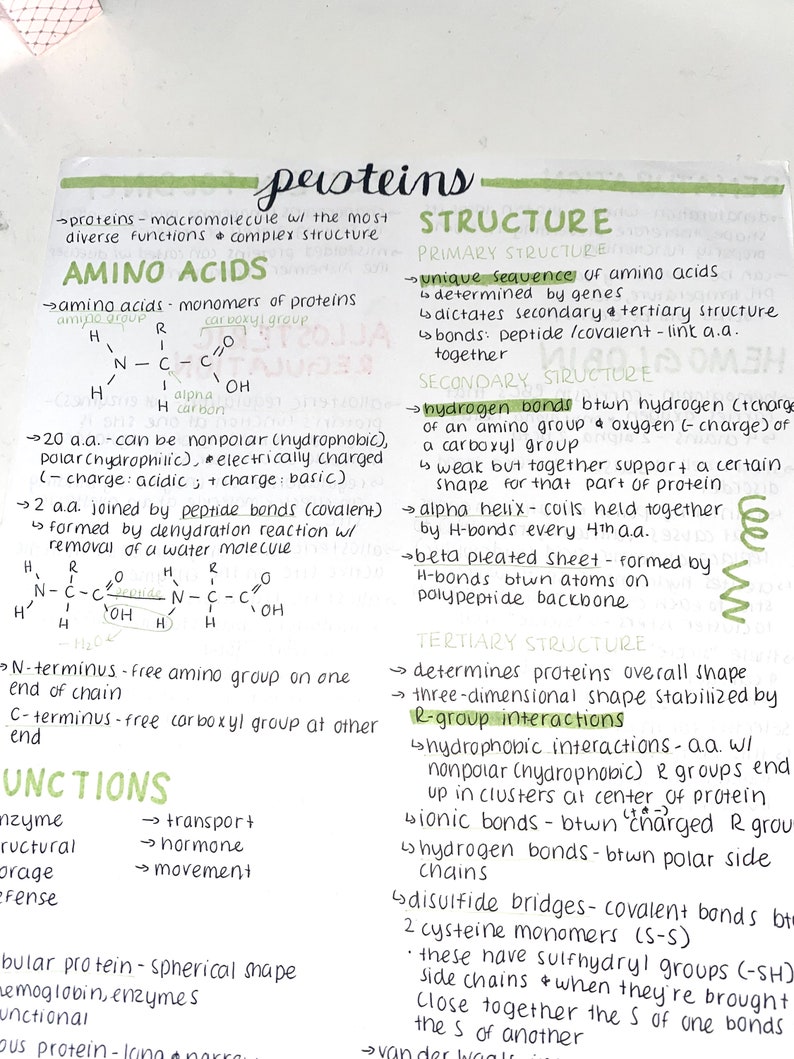 proteins
→proteins - macromolecule w/ the most
diverse functions & complex structure
AMINO ACIDS
→amino acids - monomers of proteins
amino group
carboxyl group
H
R
O
N — C — C
H
H
OH
alpha
carbon
→20 a.a. - can be nonpolar (hydrophobic),
polar (hydrophilic), & electrically charged
(- charge: acidic ; + charge: basic)
→2 a.a. joined by peptide bonds (covalent)
↳ formed by dehydration reaction w/
removal of a water molecule
H R O H R O
N - C - C peptide N - C - C
H H OH H H OH
- H₂O
→ N-terminus - free amino group on one
end of chain
C-terminus - free carboxyl group at other
end
UNCTIONS
nzyme
ructural
orage
efense
→ transport
→ hormone
→ movement
bular protein - spherical shape
hemoglobin, enzymes
unctional
ous protein - long & narrow
STRUCTURE
PRIMARY STRUCTURE
→unique sequence of amino acids
↳ determined by genes
↳ dictates secondary & tertiary structure
↳ bonds: peptide /covalent - link a.a.
together
SECONDARY STRUCTURE
→hydrogen bonds btwn hydrogen (+charge
of an amino group & oxygen (- charge) of
a carboxyl group
↳ weak but together support a certain
shape for that part of protein
→alpha helix - coils held together
by H-bonds every 4th a.a.
→beta pleated sheet - formed by
H-bonds btwn atoms on
polypeptide backbone
TERTIARY STRUCTURE
→ determines proteins overall shape
→ three-dimensional shape stabilized by
R-group interactions
↳hydrophobic interactions - a.a. w/
nonpolar (hydrophobic) R groups end
up in clusters at center of protein
↳ionic bonds - btwn (+ & -) charged R grou
↳hydrogen bonds - btwn polar side
chains
↳disulfide bridges - covalent bonds bt
2 cysteine monomers (S-S)
· these have sulfhydryl groups (-SH)
side chains & when they're brought
close together the S of one bonds
the S of another
→van der Waals